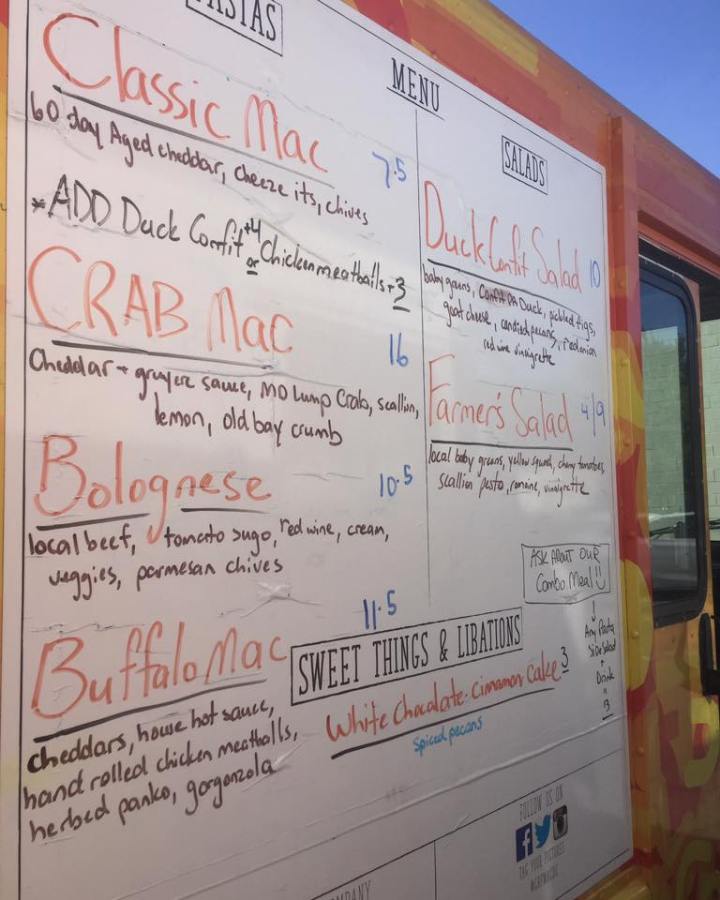 PASTAS
Classic Mac 7.5
60 day Aged cheddar, cheeze its, chives
*ADD Duck Confit +4
or Chicken meatballs +3
CRAB Mac 16
Cheddar + gruyere sauce, MD Lump Crab, scallion,
lemon, old bay crumb
Bolognese 10.5
local beef, tomato sugo, red wine, cream,
veggies, parmesan chives
Buffalo Mac 11.5
cheddars, house hot sauce,
hand rolled chicken meatballs,
herbed panko, gorgonzola
MENU
SALADS
Duck Confit Salad 10
baby greens, Confit PA Duck, pickled figs,
goat cheese, candied pecans, red onion
red wine vinaigrette
Farmer's Salad 4/9
local baby greens, yellow squash, cherry tomatoes,
scallion pesto, romaine, vinaigrette
ASK About OUR
Combo Meal!
Any Pasta
Side Salad
+
Drink
=
3
SWEET THINGS & LIBATIONS
White Chocolate-Cinnamon Cake 3
spiced pecans
FOLLOW US ON
f
TAG YOUR PICTURES
COMPANY